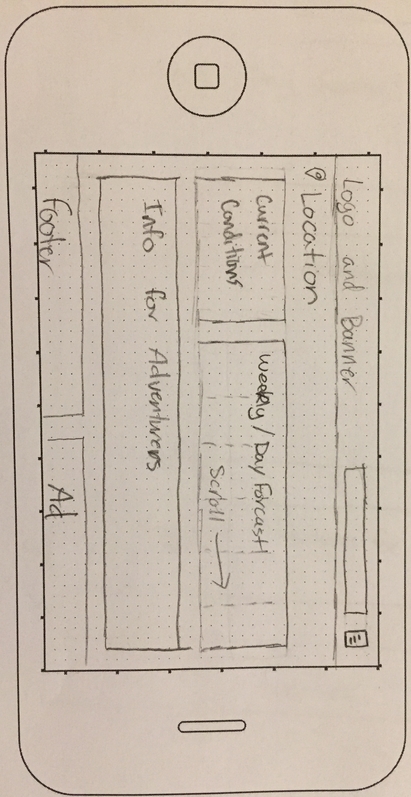 Logo and Banner
Location
Current
Conditions
Weekly / Day Forcast
Scroll
Info for Adventurers
Footer
Ad